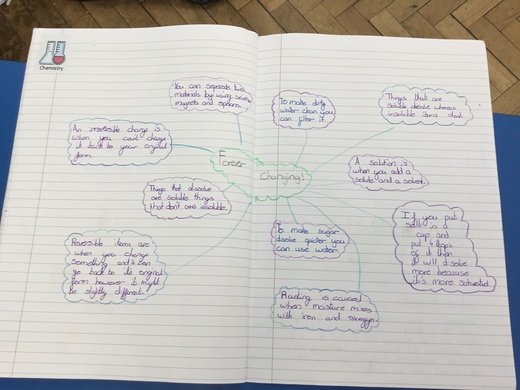 Chemistry
You can seperate two
materials by using seives
magnets and
An irreversible change is
when you can't change
it back to your original
form.
Things that dissolve
are soluble things
that don't are insoluble.
Reversible items are
when you change
something and it can
go back to its original
form however it might
be slightly different.
Forever
Changing!
To make dirty
water clean you
can filter it.
Things that are
soluble disolve whereas
insoluble items don't.
A solution is
when you add a
solute and a solvent.
If you put
salt in a
cup and
put 4 drops
of it then
it will d solve
more because
it's more saturated
To make sugar
disolve quicker you
can use water.
Rusting is caused
when moisture mixes
with iron and